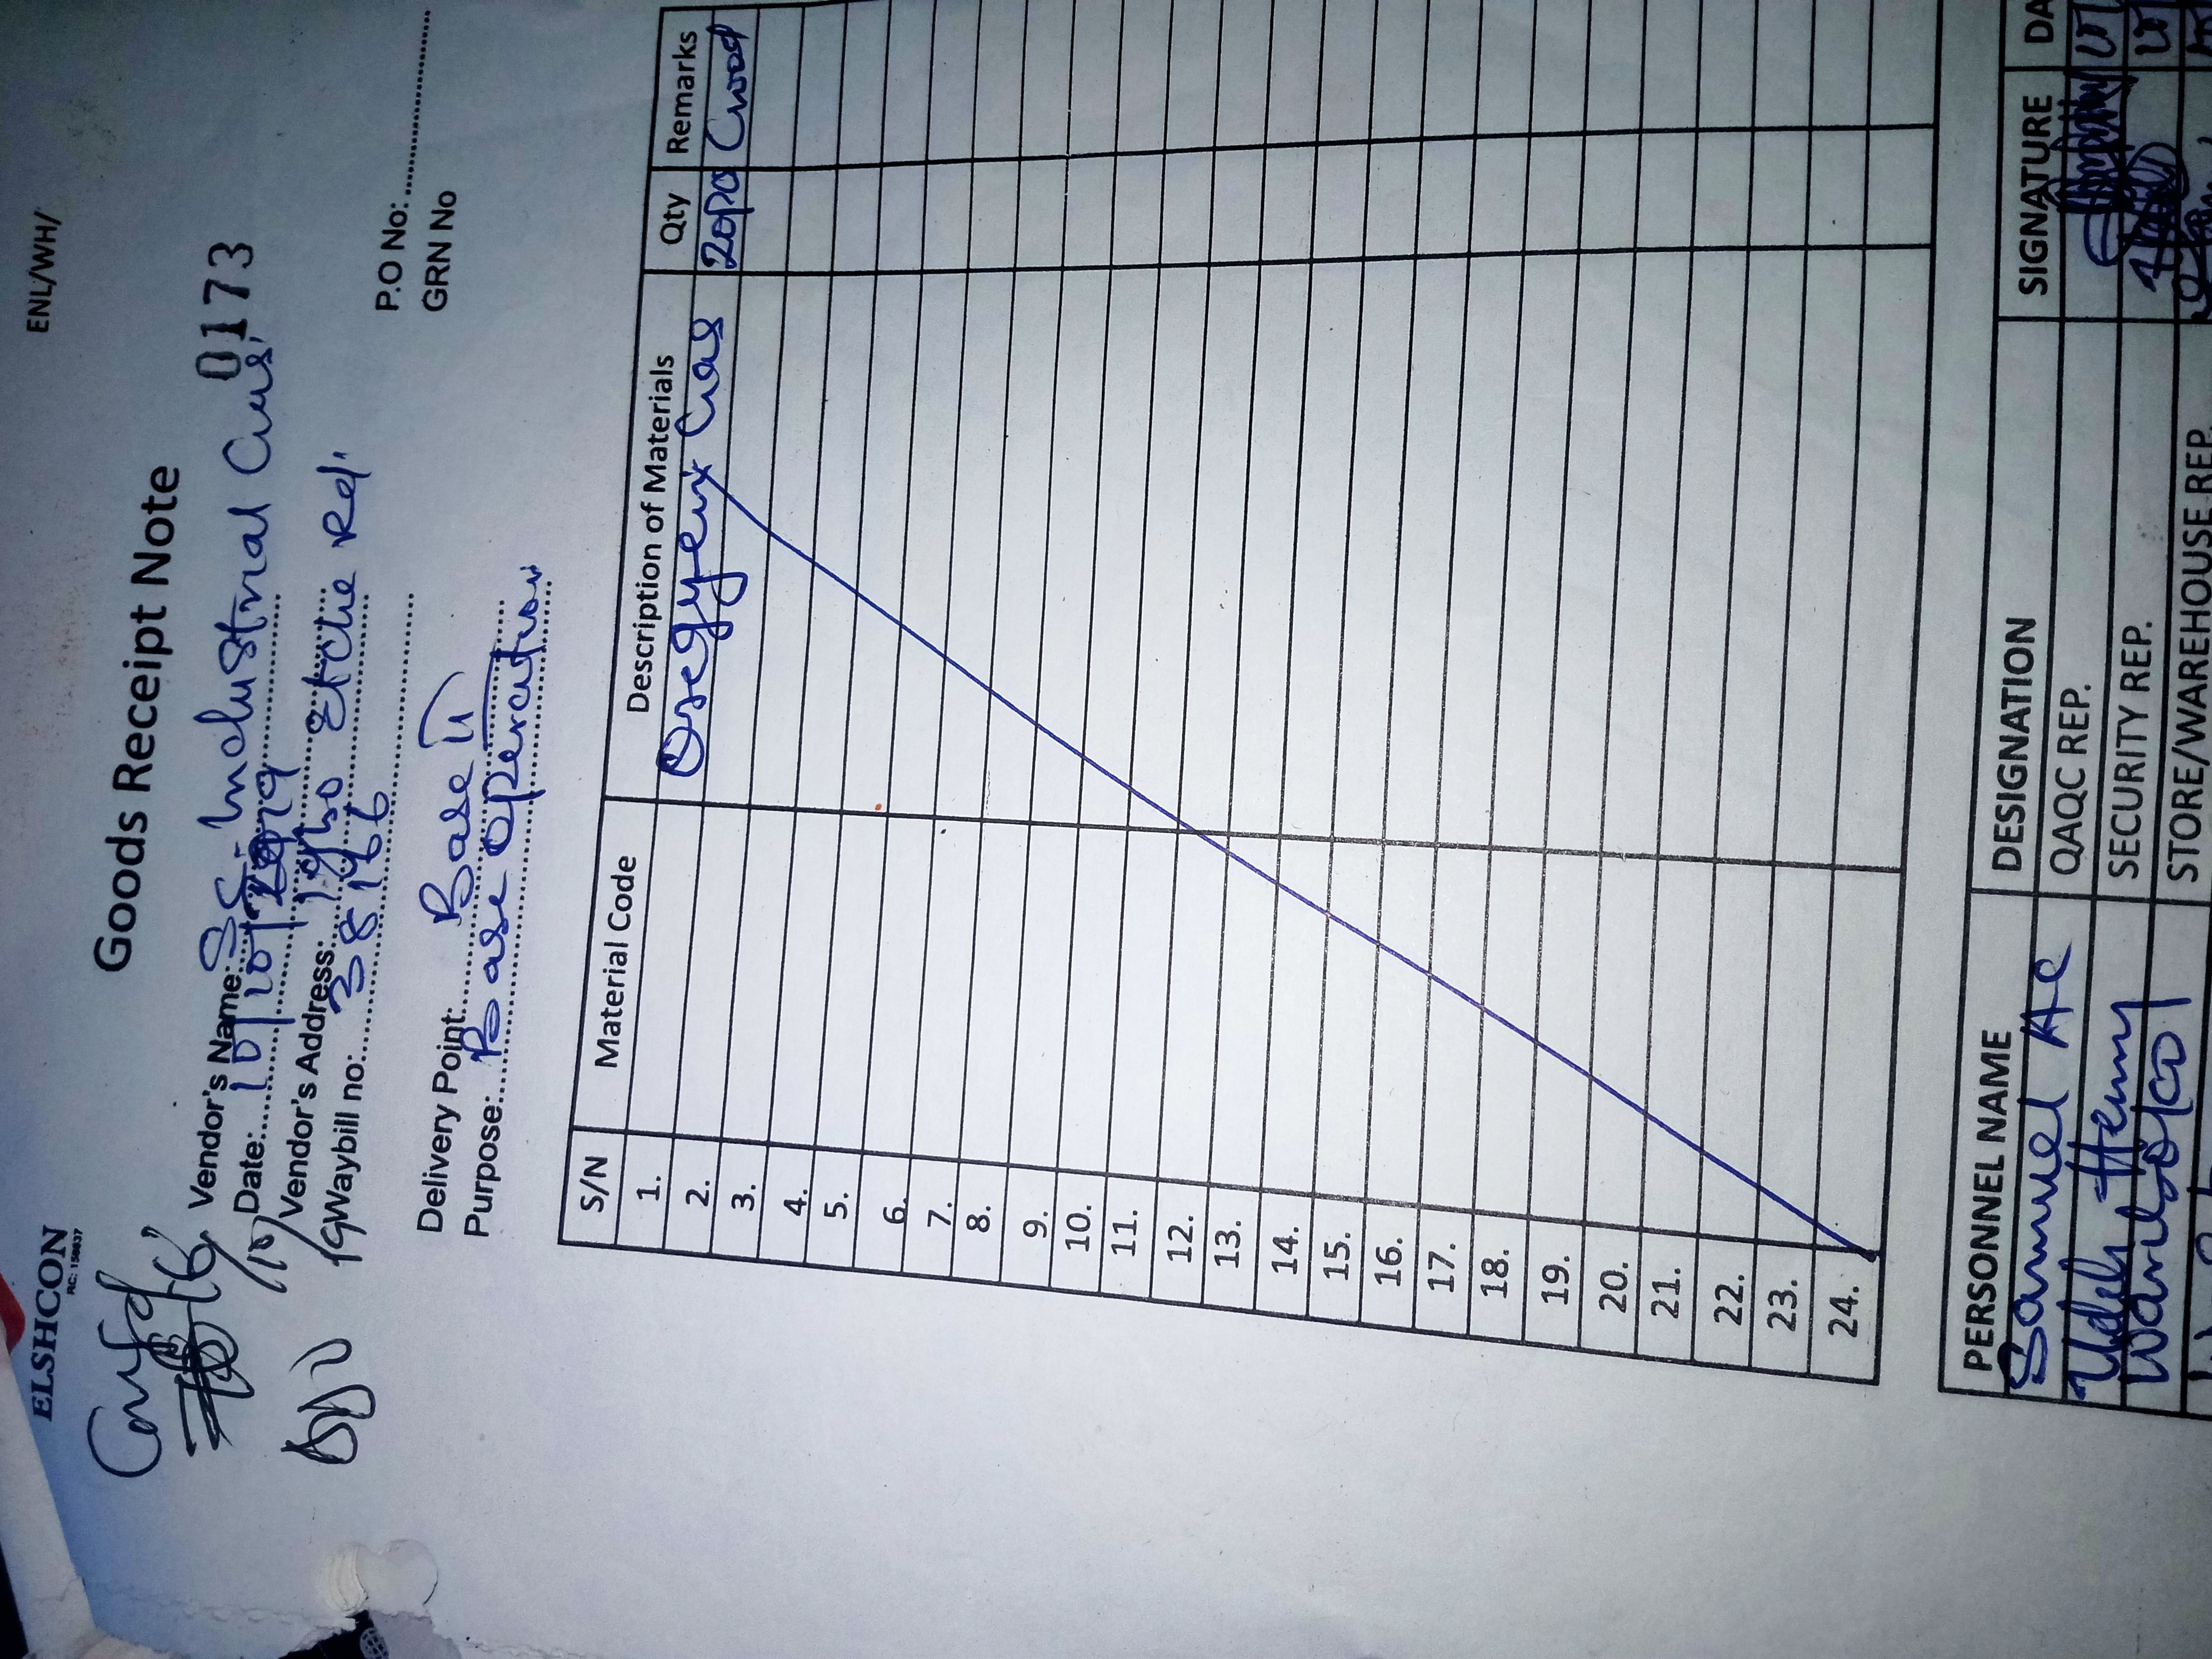 ELSHCON
RC: 150837
ENL/WH/
Goods Receipt Note
0173
Vendor's Name: Industrial Gas
Date: 10/10/2019
Vendor's Address: Igbo Etche Rd.
Waybill no: 38166
P.O No:
GRN No
Delivery Point: Base II
Purpose: Base operation
S/N Material Code Description of Materials Qty Remarks
1. Oxegyen Gas 20pcs Good
2.
3.
4.
5.
6.
7.
8.
9.
10.
11.
12.
13.
14.
15.
16.
17.
18.
19.
20.
21.
22.
23.
24.
PERSONNEL NAME DESIGNATION SIGNATURE DA
Samuel QAQC REP.
Udeh Henry SECURITY REP.
STORE/WAREHOUSE REP.